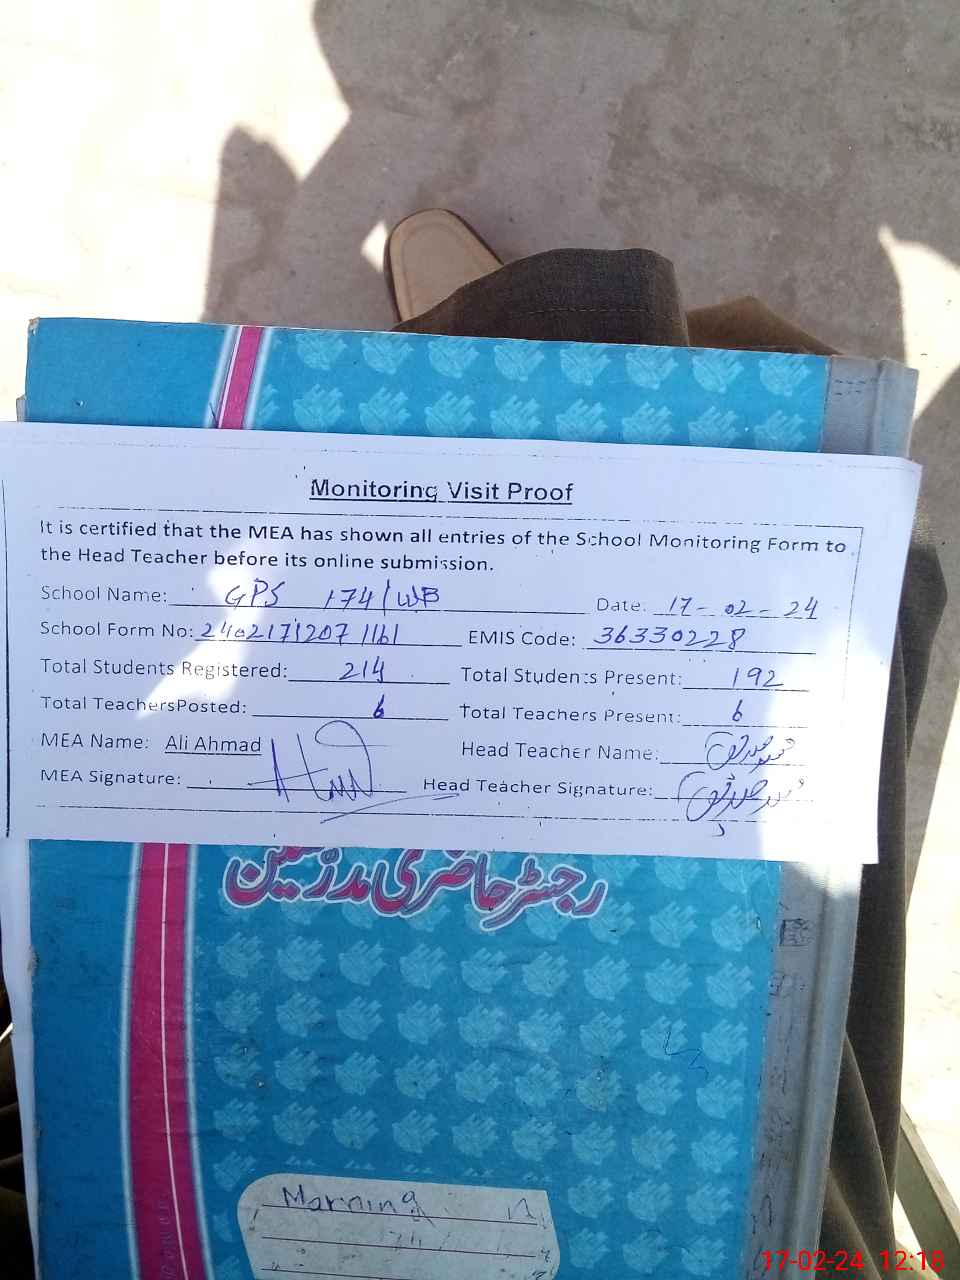 Monitoring Visit Proof
It is certified that the MEA has shown all entries of the School Monitoring Form to
the Head Teacher before its online submission.
School Name: GPS 174/WB Date: 17-02-24
School Form No: 2402171207 1161 EMIS Code: 36330228
Total Students Registered: 214 Total Students Present: 192
Total TeachersPosted: 6 Total Teachers Present: 6
MEA Name: Ali Ahmad Head Teacher Name:
MEA Signature: Head Teacher Signature:
رجسٹر حاضری مدرسین
Morning
17-02-24 12:18